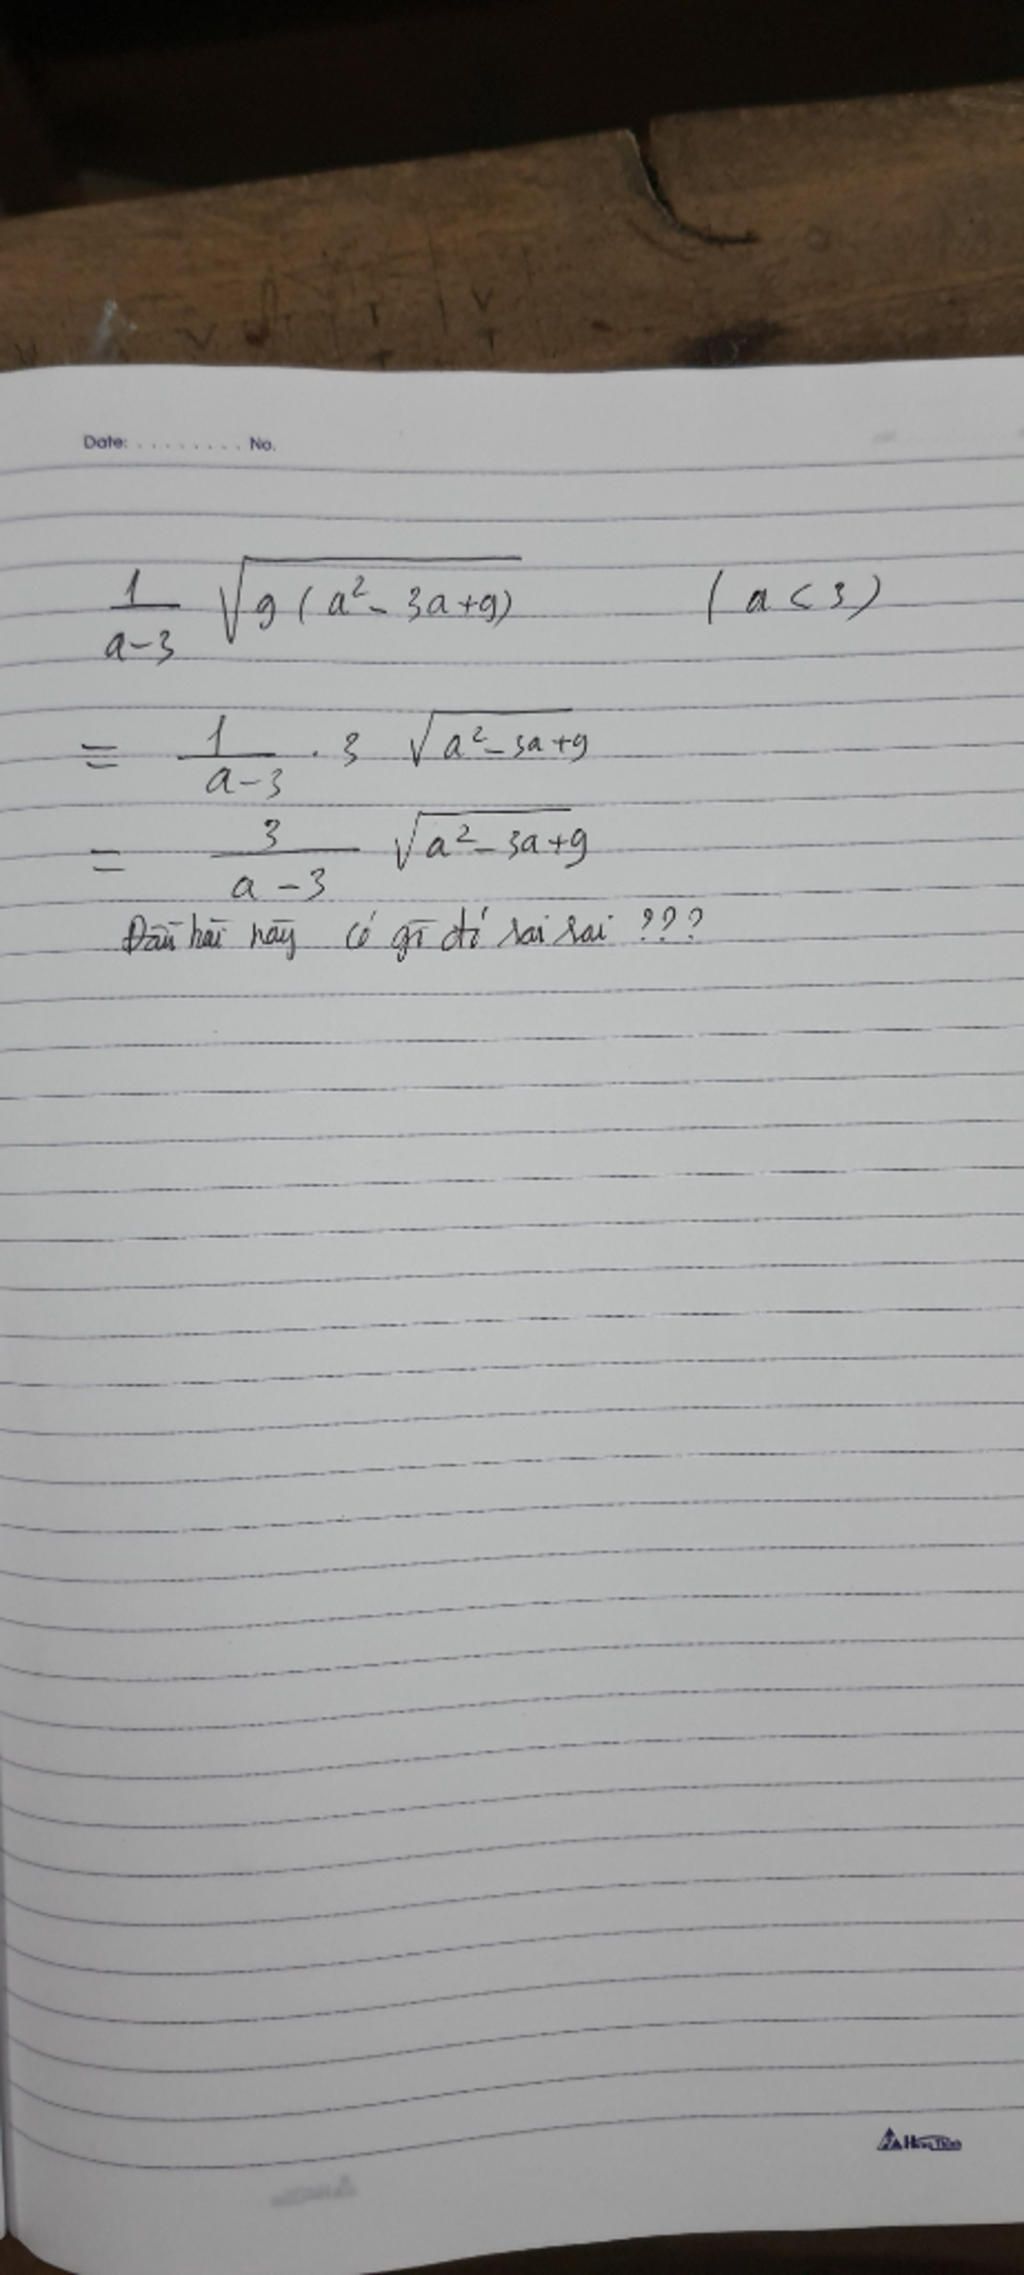 Date: ........ No.
1/(a-3) √(9(a²-3a+9)) (a<3)
= 1/(a-3) . 3 √(a²-3a+9)
= 3/(a-3) √(a²-3a+9)
Đầu bài này có gì đó sai sai ???